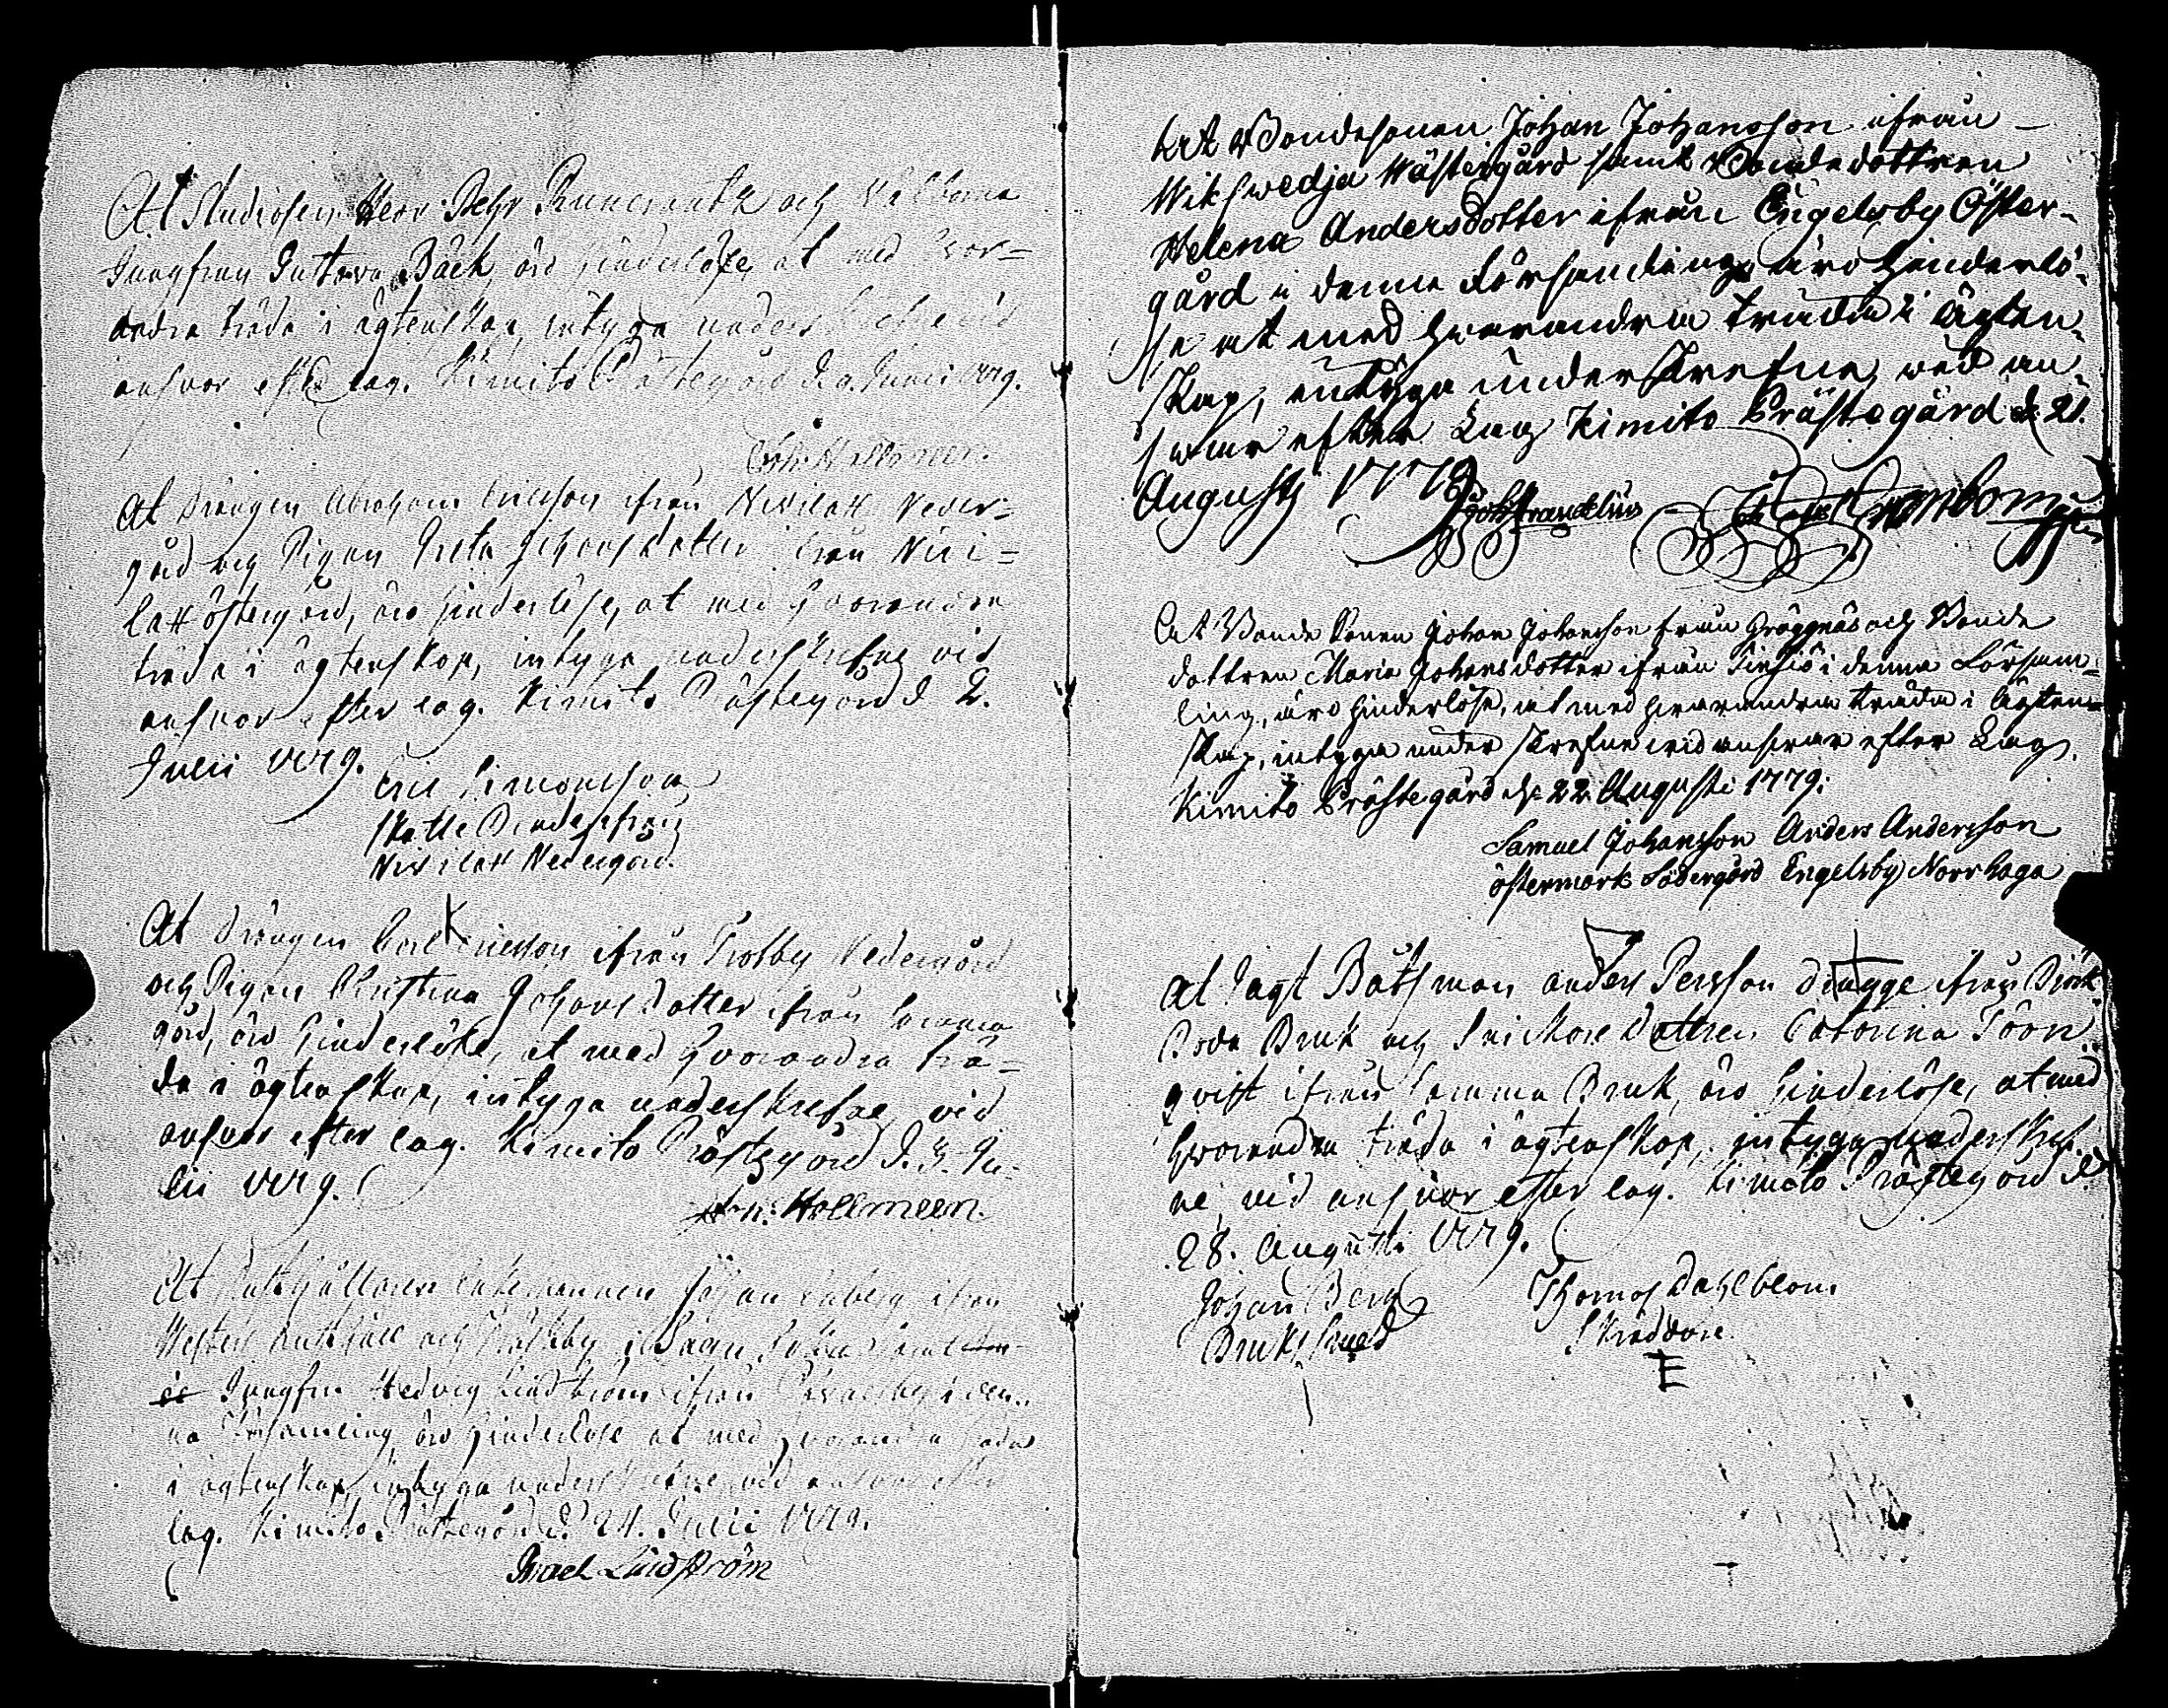 At Studiosen Herr Pehr och Wälborna
Jungfrun Gustava Bäck, äro hinderlöse, at med hvar=
andra träda i ägtenskap, intyga underskrefne vid
ansvar efter lag. Kimito Prästegård d. Junii 1779.
Hallmeen.
At Drängen Abraham Ericsson ifrån Nivilax Neder=
gård och Pigan Greta Johansdotter ifrån Nivi=
lax östergård, äro hinderlöse, at med hvarandra
träda i ägtenskap, intyga underskrefne vid
ansvar efter lag. Kimito Prästegård d. 2.
Julii 1779.
Eric Simonsson
Skatte Bonde ifrån
Nivilax Nedergård.
At Drängen Carl Ericsson ifrån Trotby Nedergård
och Pigan Christina Johansdotter ifrån samma
gård, äro hinderlöse, at med hvarandra trä=
da i ägtenskap, intyga underskrefne, vid
ansvar efter lag. Kimito Prästegård d. 3. Ju=
lii 1779.
Hallmeen.
At Enkemannen Johan ifrån
och
Jungfru Hedvig Lindström ifrån i den=
na Församling, äro hinderlöse at med hvarandra träda
i ägtenskap, intyga underskrefne, vid ansvar efter
lag. Kimito Prästegård d. 24. Julii 1779.
Israel Lindström
At Bondesonen Johan Johansson ifrån
Wikswedja Wästergård samt Bondedottren
Helena Andersdotter ifrån Engelsby Öster=
gård i denna Församling, äro hinderlö=
se at med hwarandra träda i Ägten=
skap, intyga underskrefne, wid an=
swar efter Lag. Kimito Prästegård d. 21.
Augusti 1779
Granbom
At Bonde Sonen Johan Johansson från Gräggnäs och Bonde
dottren Maria Johansdotter ifrån i denna Församl=
ling, äro hinderlöse, at med hwarandra träda i Ägten=
skap, intyga underskrefne wid answar efter Lag.
Kimito Prästegård d. 22 Augusti 1779.
Samuel Johansson Anders Andersson
Östermark Södergård Engelsby Norrlaga
At Jagt Båtsman Anders Persson Drygge ifrån Björk=
boda Bruk och Snickare Dottren Catarina Törn=
qvist ifrån samma Bruk, äro hinderlöse, at med
hvarandra träda i ägtenskap, intyga underskref=
ne, vid ansvar efter lag. Kimito Prästegård d.
28. Augusti 1779.
Johan Berg Thomas Dahlblom.
Bruks Smed Skräddare.